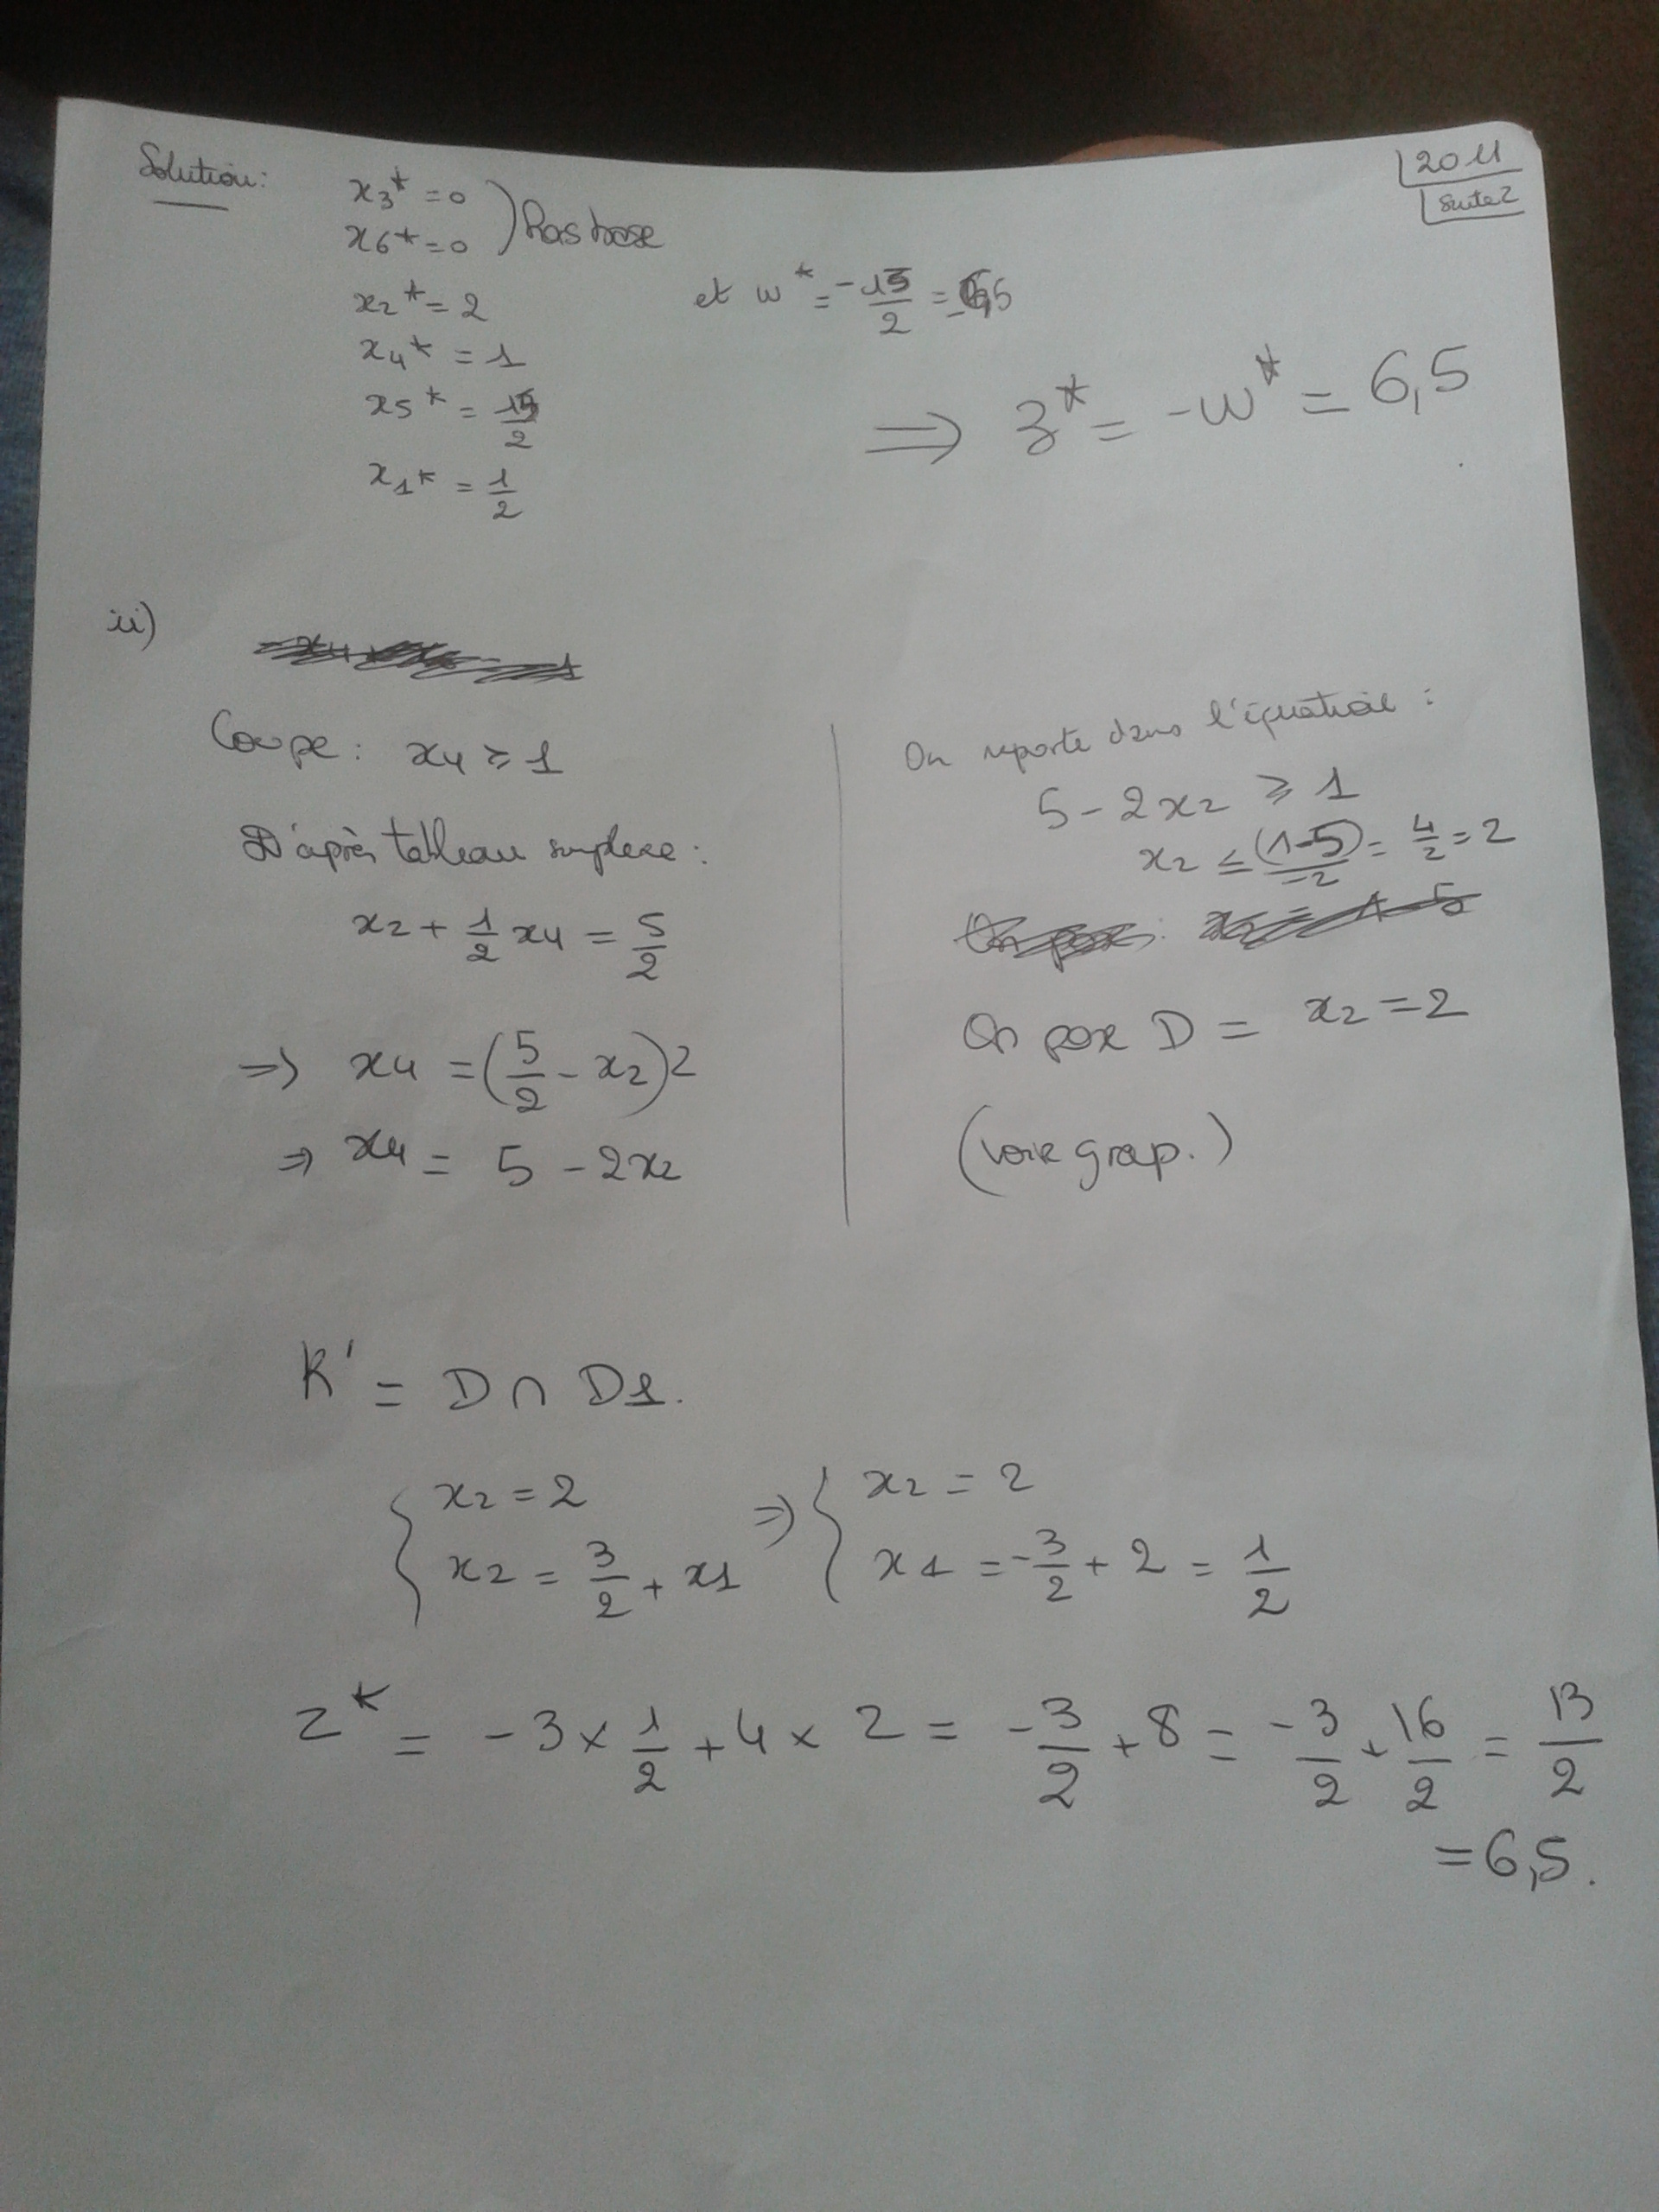 2011
Suite 2
Solution:
x3* = 0
x6* = 0 ) Hors base
x2* = 2
et w* = -13/2 = -6,5
x4* = 1
x5* = /2
x1* = 1/2
⇒ z* = -w* = 6,5
ii)
Coupe : x4 ≥ 1
D'après tableau simplexe :
x2 + 1/2 x4 = 5/2
⇒ x4 = (5/2 - x2)2
⇒ x4 = 5 - 2x2
On reporte dans l'équation :
5 - 2x2 ≥ 1
x2 ≤ (1-5)/-2 = 4/2 = 2
On pose D = x2 = 2
(voir grap.)
K' = D ∩ D1.
{ x2 = 2 ⇒ { x2 = 2
x2 = 3/2 + x1 x1 = -3/2 + 2 = 1/2
z* = -3 × 1/2 + 4 × 2 = -3/2 + 8 = -3/2 + 16/2 = 13/2
= 6,5.